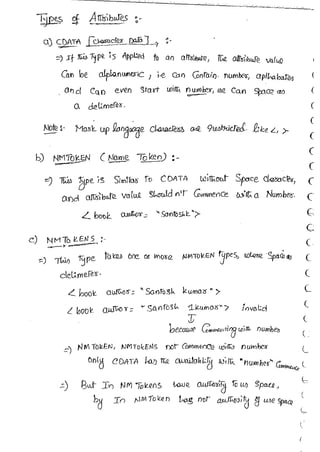 Types of Attributes :-
a) CDATA [character Data] → :-
⇒ If this Type is Applied to an attribute, The attribute value
Can be alphanumeric, ie can Contain number, aplhabates
and Can even Start with number, we Can Space as
a delimeter.
Note :- Mark up language characters are restricted like <, >
b) NMTOKEN (Name Token) :-
⇒ This type is Similar To CDATA without Space character,
and attribute value Should n't Commence with a Number.
< book author = "Santoshk">
c) NMTOKENS :-
⇒ This Type takes one or more NMTOKEN types, where Space as
delimeter.
< book author = "Santosh kumar">
< book author = "Santosh 1kumar"> invalid
because Commencing with number
⇒ NMTOKEN, NMTOKENS not Commence with number
only CDATA has the availability with "number" Commence
⇒ But In NM Tokens have authority To use Space,
by In NMToken has not authority of use Space